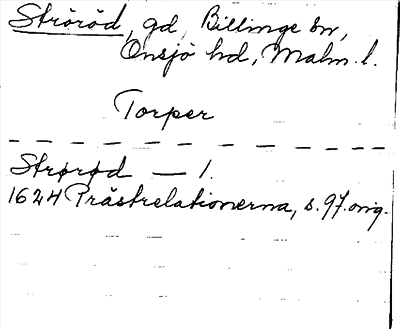 Ströröd, gd, Billinge sn,
Onsjö hd, Malm. l.
Torper
Strørød — 1.
1624 Prästrelationerna, s. 97. orig.